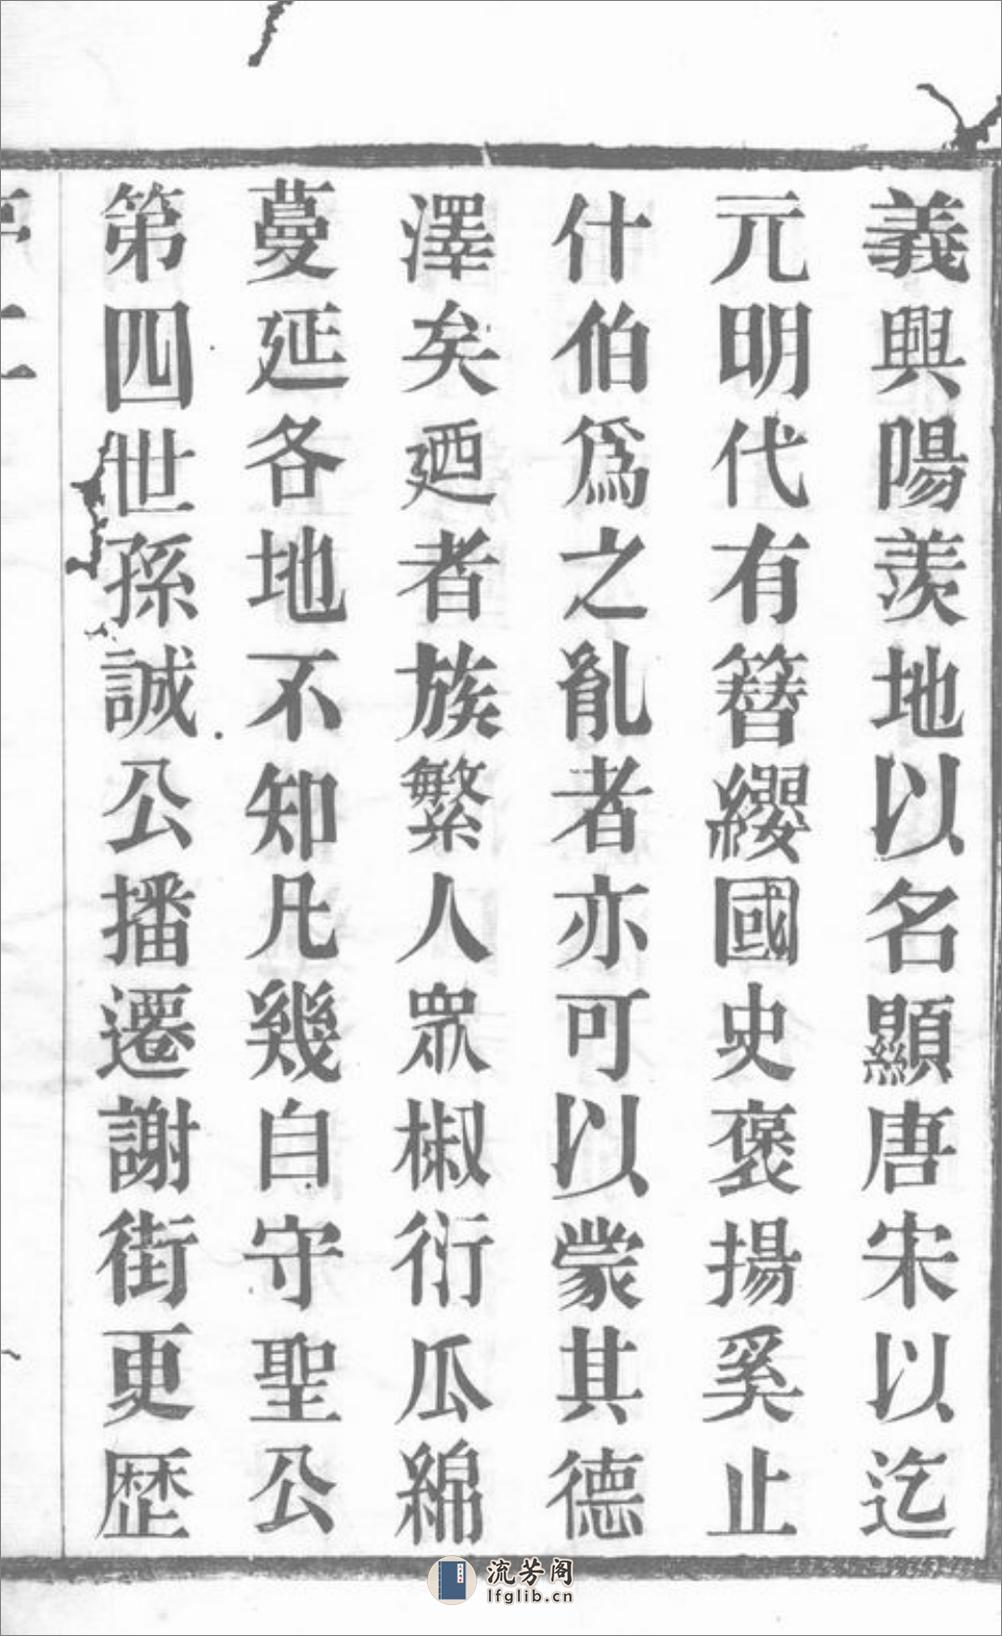 義興陽羨地以名顯唐宋以迄
元明代有簪纓國史褒揚奚止
什伯爲之亂者亦可以蒙其德
澤矣廼者族繁人眾椒衍瓜綿
蔓延各地不知凡幾自守聖公
第四世孫誠公播遷謝街更歴
流芳阁
lfglib.cn